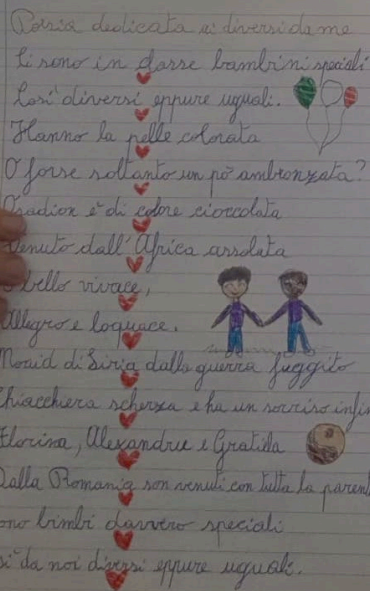 Poesia dedicata ai diversi da me
Ci sono in classe bambini speciali
Così diversi eppure uguali.
Hanno la pelle colorata
O forse soltanto un pò ambronzata?
è di colore cioccolata
Venuto dall'Africa assolata
bello vivace,
Allegro e loquace.
Mouid di Siria dalla guerra fuggito
Chiacchiera scherza e ha un sorriso infini
Florina, Alexandru e Gratida
Dalla Romania son venuti con tutta la parent
ono bimbi davvero speciali
sì da noi diversi eppure uguali.